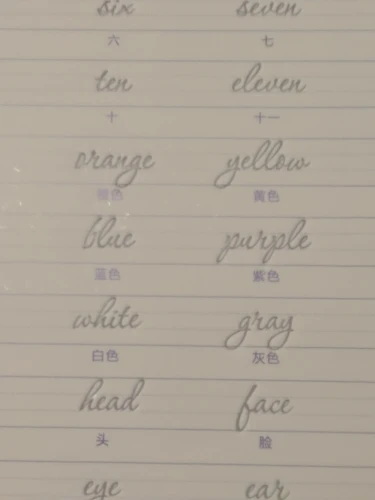 six seven
六 七
ten eleven
十 十一
orange yellow
橙色 黄色
blue purple
蓝色 紫色
white gray
白色 灰色
head face
头 脸
eye ear